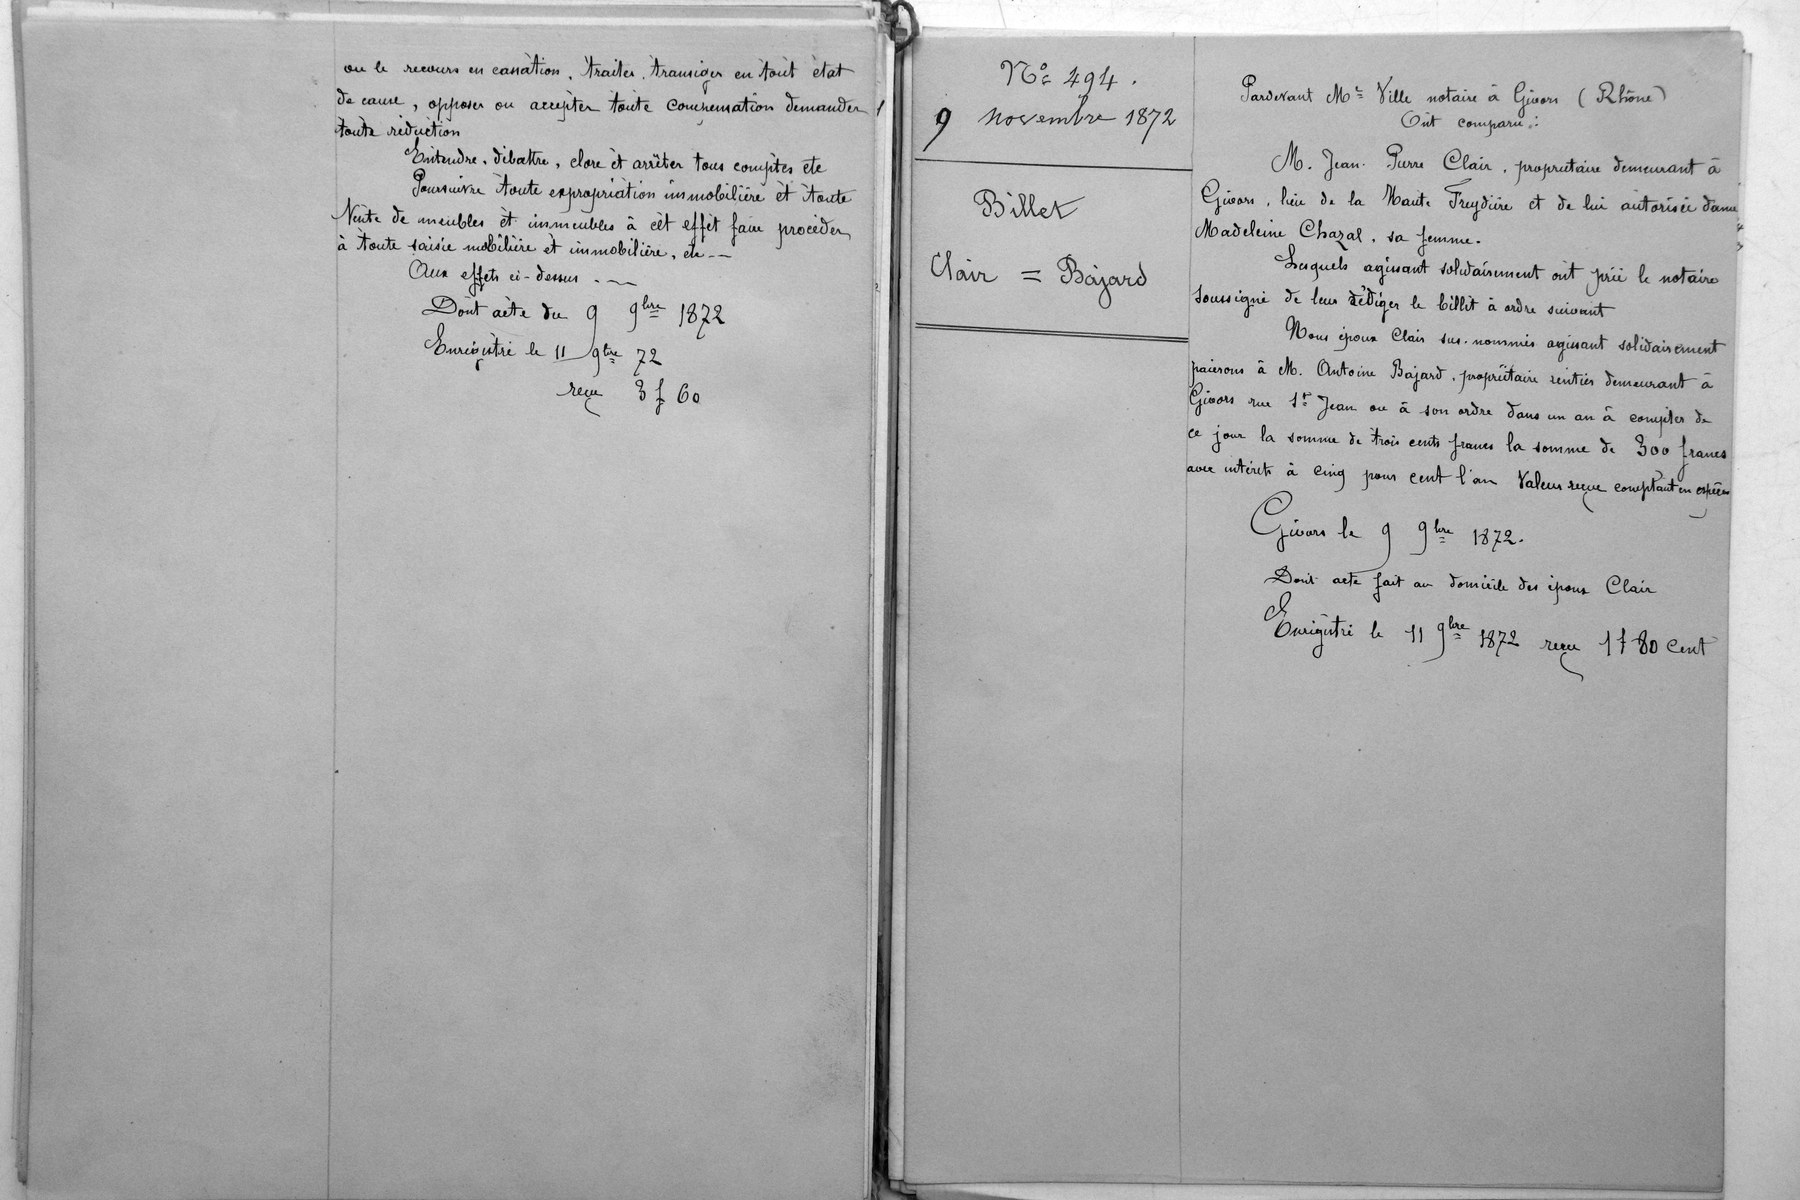 ou le recours en cassation, traiter, transiger en tout état
de cause, opposer ou accepter toute compensation demander
toute réduction
Entendre, débattre, clore et arrêter tous comptes etc
Poursuivre toute expropriation immobilière et toute
Vente de meubles et immeubles à cet effet faire procéder
à toute saisie mobilière et immobilière, etc --
Aux effets ci-dessus . --
Dont acte du 9 9bre 1872
Enregistré le 11 9bre 72
reçu 3 f 60
No 494.
9 novembre 1872
Billet
Clair = Bajard
Pardevant Me Ville notaire à Givors (Rhône)
Ont comparu :
M. Jean-Pierre Clair, propriétaire demeurant à
Givors, lieu de la Haute Freydière et de lui autorisée dame
Madeleine Chazal, sa femme.
Lesquels agissant solidairement ont prié le notaire
soussigné de leur rédiger le billet à ordre suivant
Nous époux Clair sus-nommés agissant solidairement
paierons à M. Antoine Bajard, propriétaire rentier demeurant à
Givors rue St Jean ou à son ordre dans un an à compter de
ce jour la somme de trois cents francs la somme de 300 francs
avec intérêts à cinq pour cent l'an Valeur reçue comptant en espèces
Givors le 9 9bre 1872.
Dont acte fait au domicile des époux Clair
Enregistré le 11 9bre 1872 reçu 1 f 80 cent